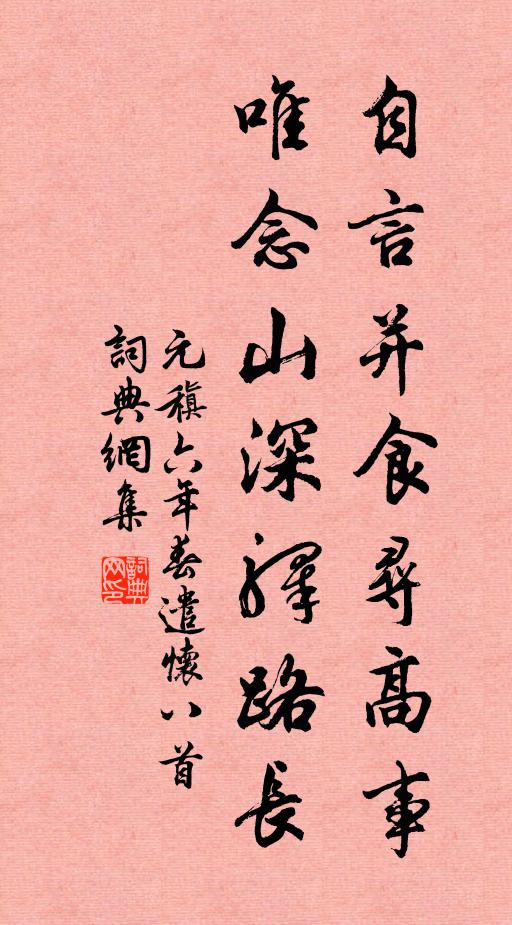 自言并食尋高事
唯念山深驛路長
元稹六年春遣懷八首
詞典網集
詞典網印